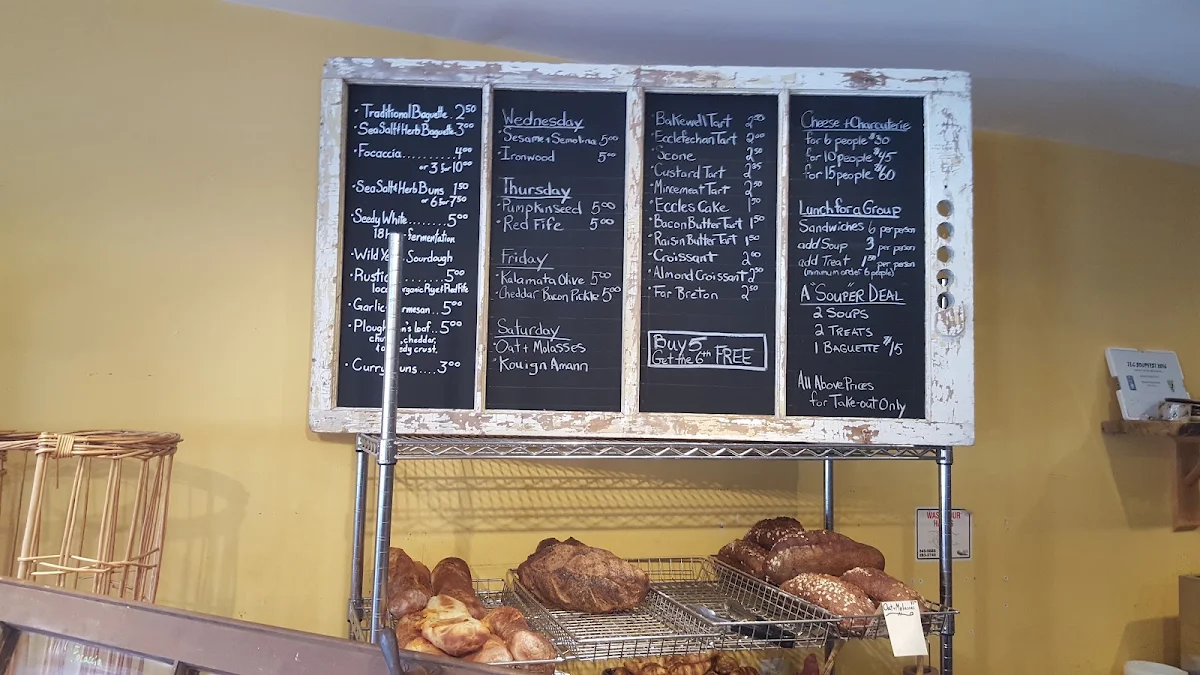 · Traditional Baguette . 2⁵⁰
· Sea Salt & Herb Baguette. 3⁰⁰
· Focaccia.......... 4⁰⁰
or 3 for 10⁰⁰
· Sea Salt & Herb Buns 1⁵⁰
or 6 for 7⁵⁰
· Seedy White....... 5⁰⁰
fermentation
· Wild Sourdough
· Rustic 5⁰⁰
organic Rye + Red Fife
· Garlic 5⁰⁰
· Plough loaf.. 5⁰⁰
cheddar,
crust.
· Curry 3⁰⁰
Wednesday
· Sesame + Semolina 5⁰⁰
· Ironwood 5⁰⁰
Thursday
· Pumpkinseed 5⁰⁰
· Red Fife 5⁰⁰
Friday
· Kalamata Olive 5⁰⁰
· Cheddar Bacon Pickle 5⁰⁰
Saturday
· Oat + Molasses
· Kouign Amann
· Bakewell Tart 2⁵⁰
· Ecclefechan Tart 2⁰⁰
· Scone 2⁵⁰
· Custard Tart
· Mincemeat Tart 2⁵⁰
· Eccles Cake 1⁵⁰
· Bacon Butter Tart 1⁵⁰
· Raisin Butter Tart 1⁵⁰
· Croissant 2⁰⁰
· Almond Croissant 2⁵⁰
· Far Breton 2⁵⁰
Buy 5
Get the 6th FREE
Cheese + Charcuterie
for 6 people $30
for 10 people $45
for 15 people $60
Lunch for a Group
Sandwiches 6 per person
add Soup 3 per person
add Treat 1⁵⁰ per person
(minimum order 6 people)
A "SOUP"ER DEAL
2 SOUPS
2 TREATS
1 BAGUETTE $15
All Above Prices
for Take-out Only
Oat + Molasses